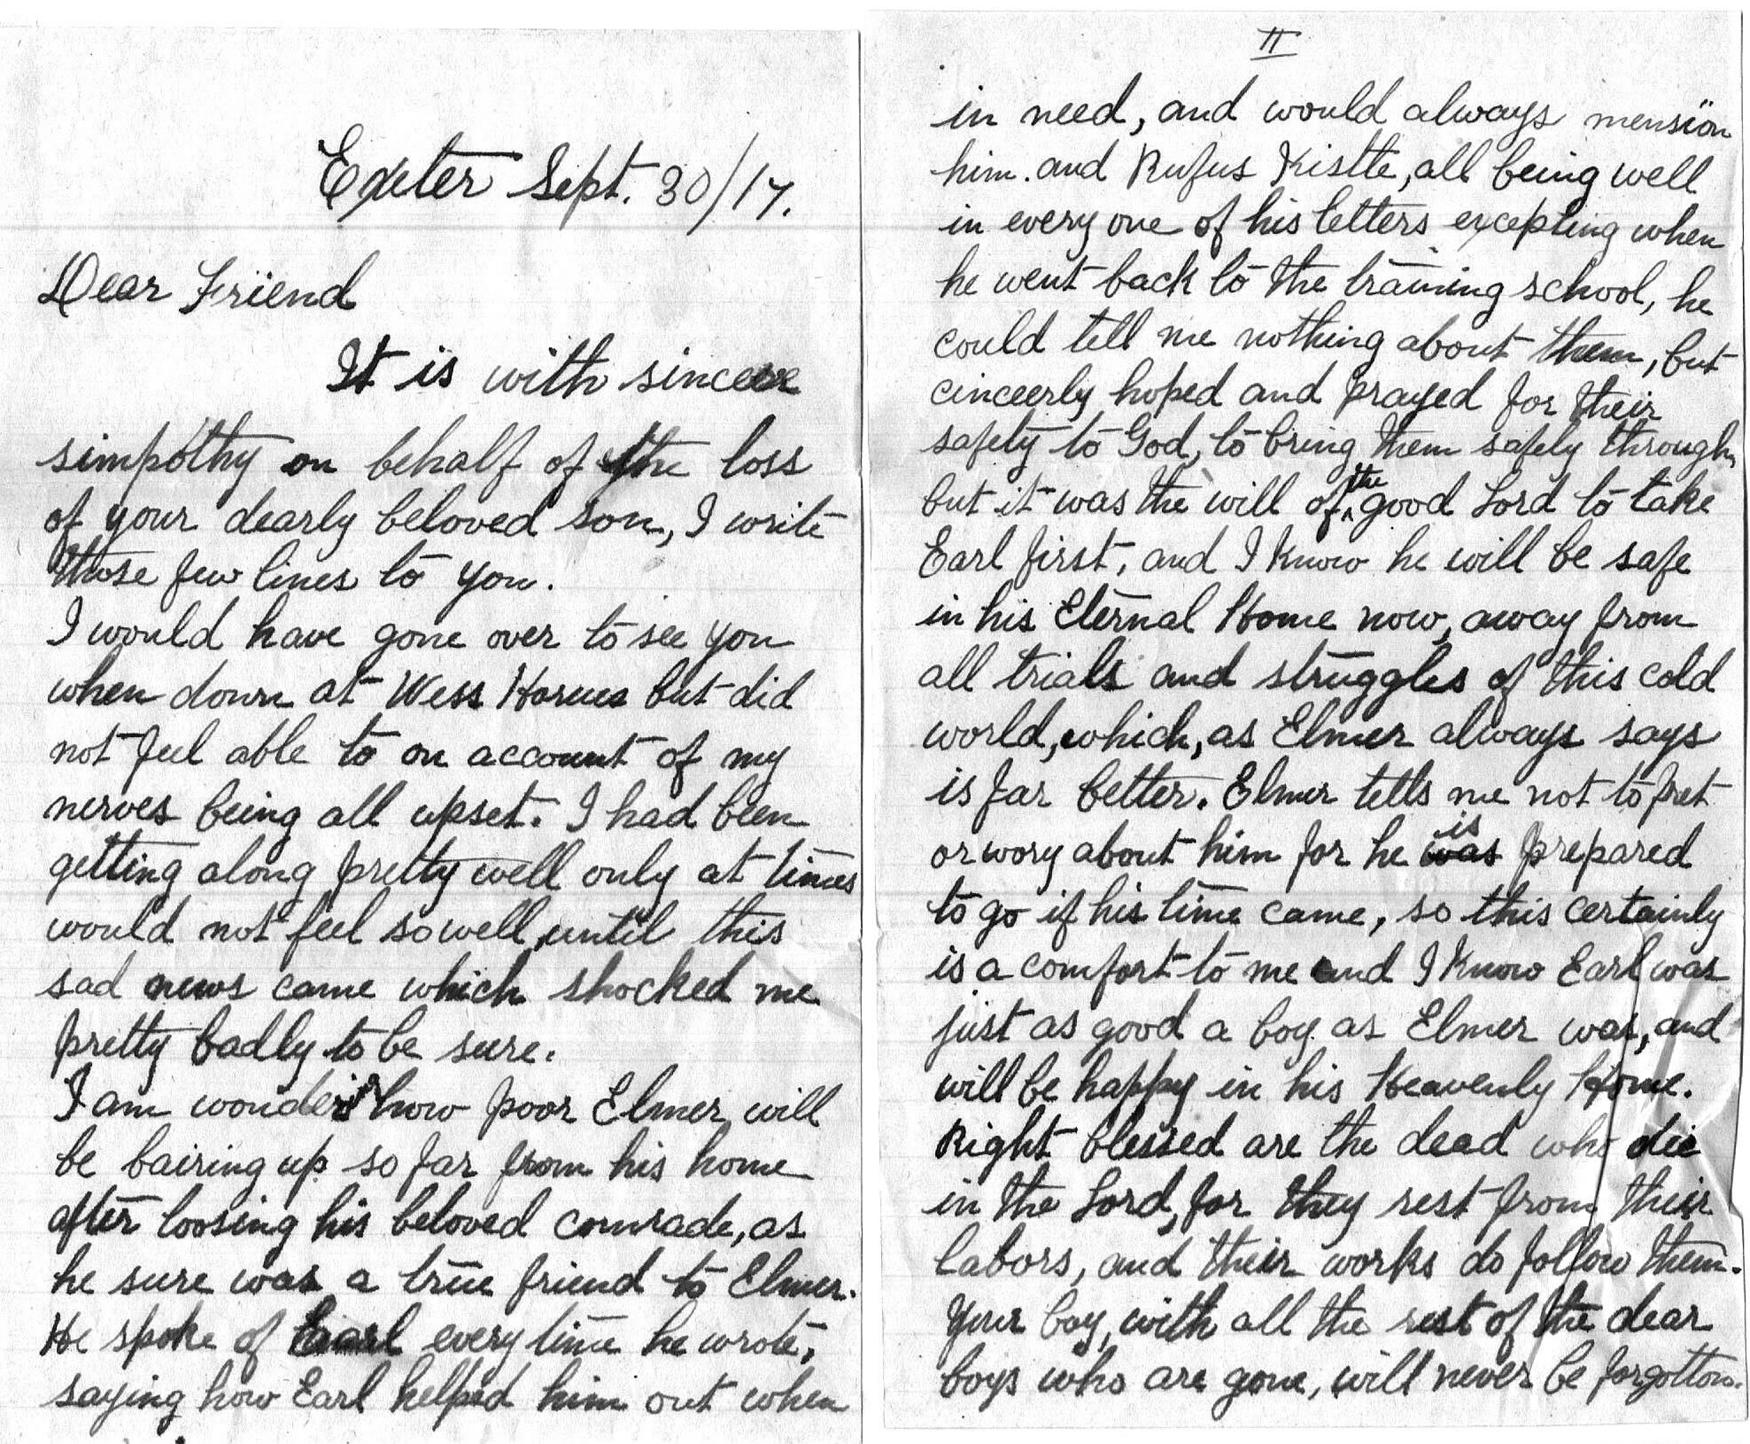 Exeter Sept. 30/17.
Dear Friend
It is with sinceere
simpothy on behalf of the loss
of your dearly beloved son, I write
those few lines to you.
I would have gone over to see you
when down at Wess Hornes but did
not feel able to on account of my
nerves being all upset. I had been
getting along pretty well only at times
would not feel so well, until this
sad news came which shocked me
pretty badly to be sure.
I am wonderi how poor Elmer will
be bairing up so far from his home
after loosing his beloved comrade, as
he sure was a true friend to Elmer.
He spoke of Earl every time he wrote,
saying how Earl helped him out when
II
in need, and would always mension
him. and Rufus Kistle, all being well
in every one of his letters excepting when
he went back to the training school, he
could tell me nothing about them, but
cinceerly hoped and prayed for their
safety to God, to bring them safely through,
but it was the will of the good Lord to take
Earl first, and I know he will be safe
in his Eternal Home now, away from
all trials and struggles of this cold
world, which, as Elmer always says
is far better. Elmer tells me not to fret
or wory about him for he was is prepared
to go if his time came, so this certainly
is a comfort to me and I know Earl was
just as good a boy as Elmer was, and
will be happy in his Heavenly Home.
Right blessed are the dead who die
in the Lord, for they rest from their
labors, and their works do follow them.
Your boy, with all the rest of the dear
boys who are gone, will never be forgotton.